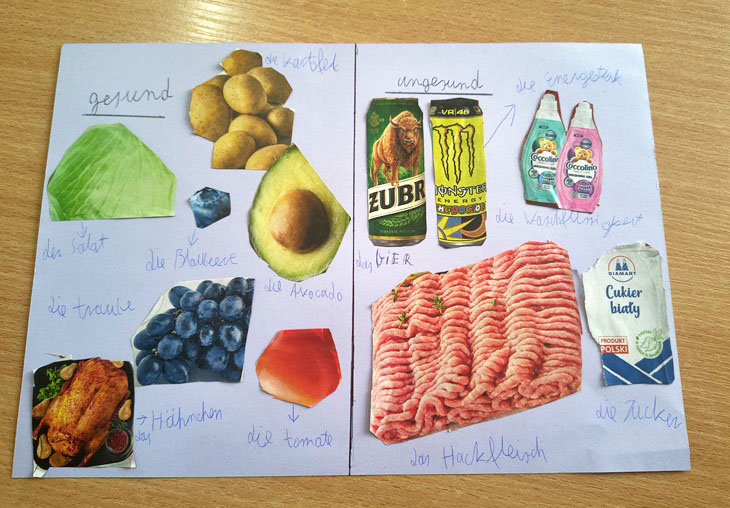 gesund
die Kartffel
der Salat
die Blaubeere
die Avocado
die traube
das Hähnchen
die tomate
ungesund
die Energetik
ŻUBR
VR/46
MONSTER
ENERGY
coccolino
coccolino
die Waschflüssigkeit
das BIER
DIAMANT
Cukier
biały
PRODUKT
POLSKI
die Zucker
das Hackfleisch